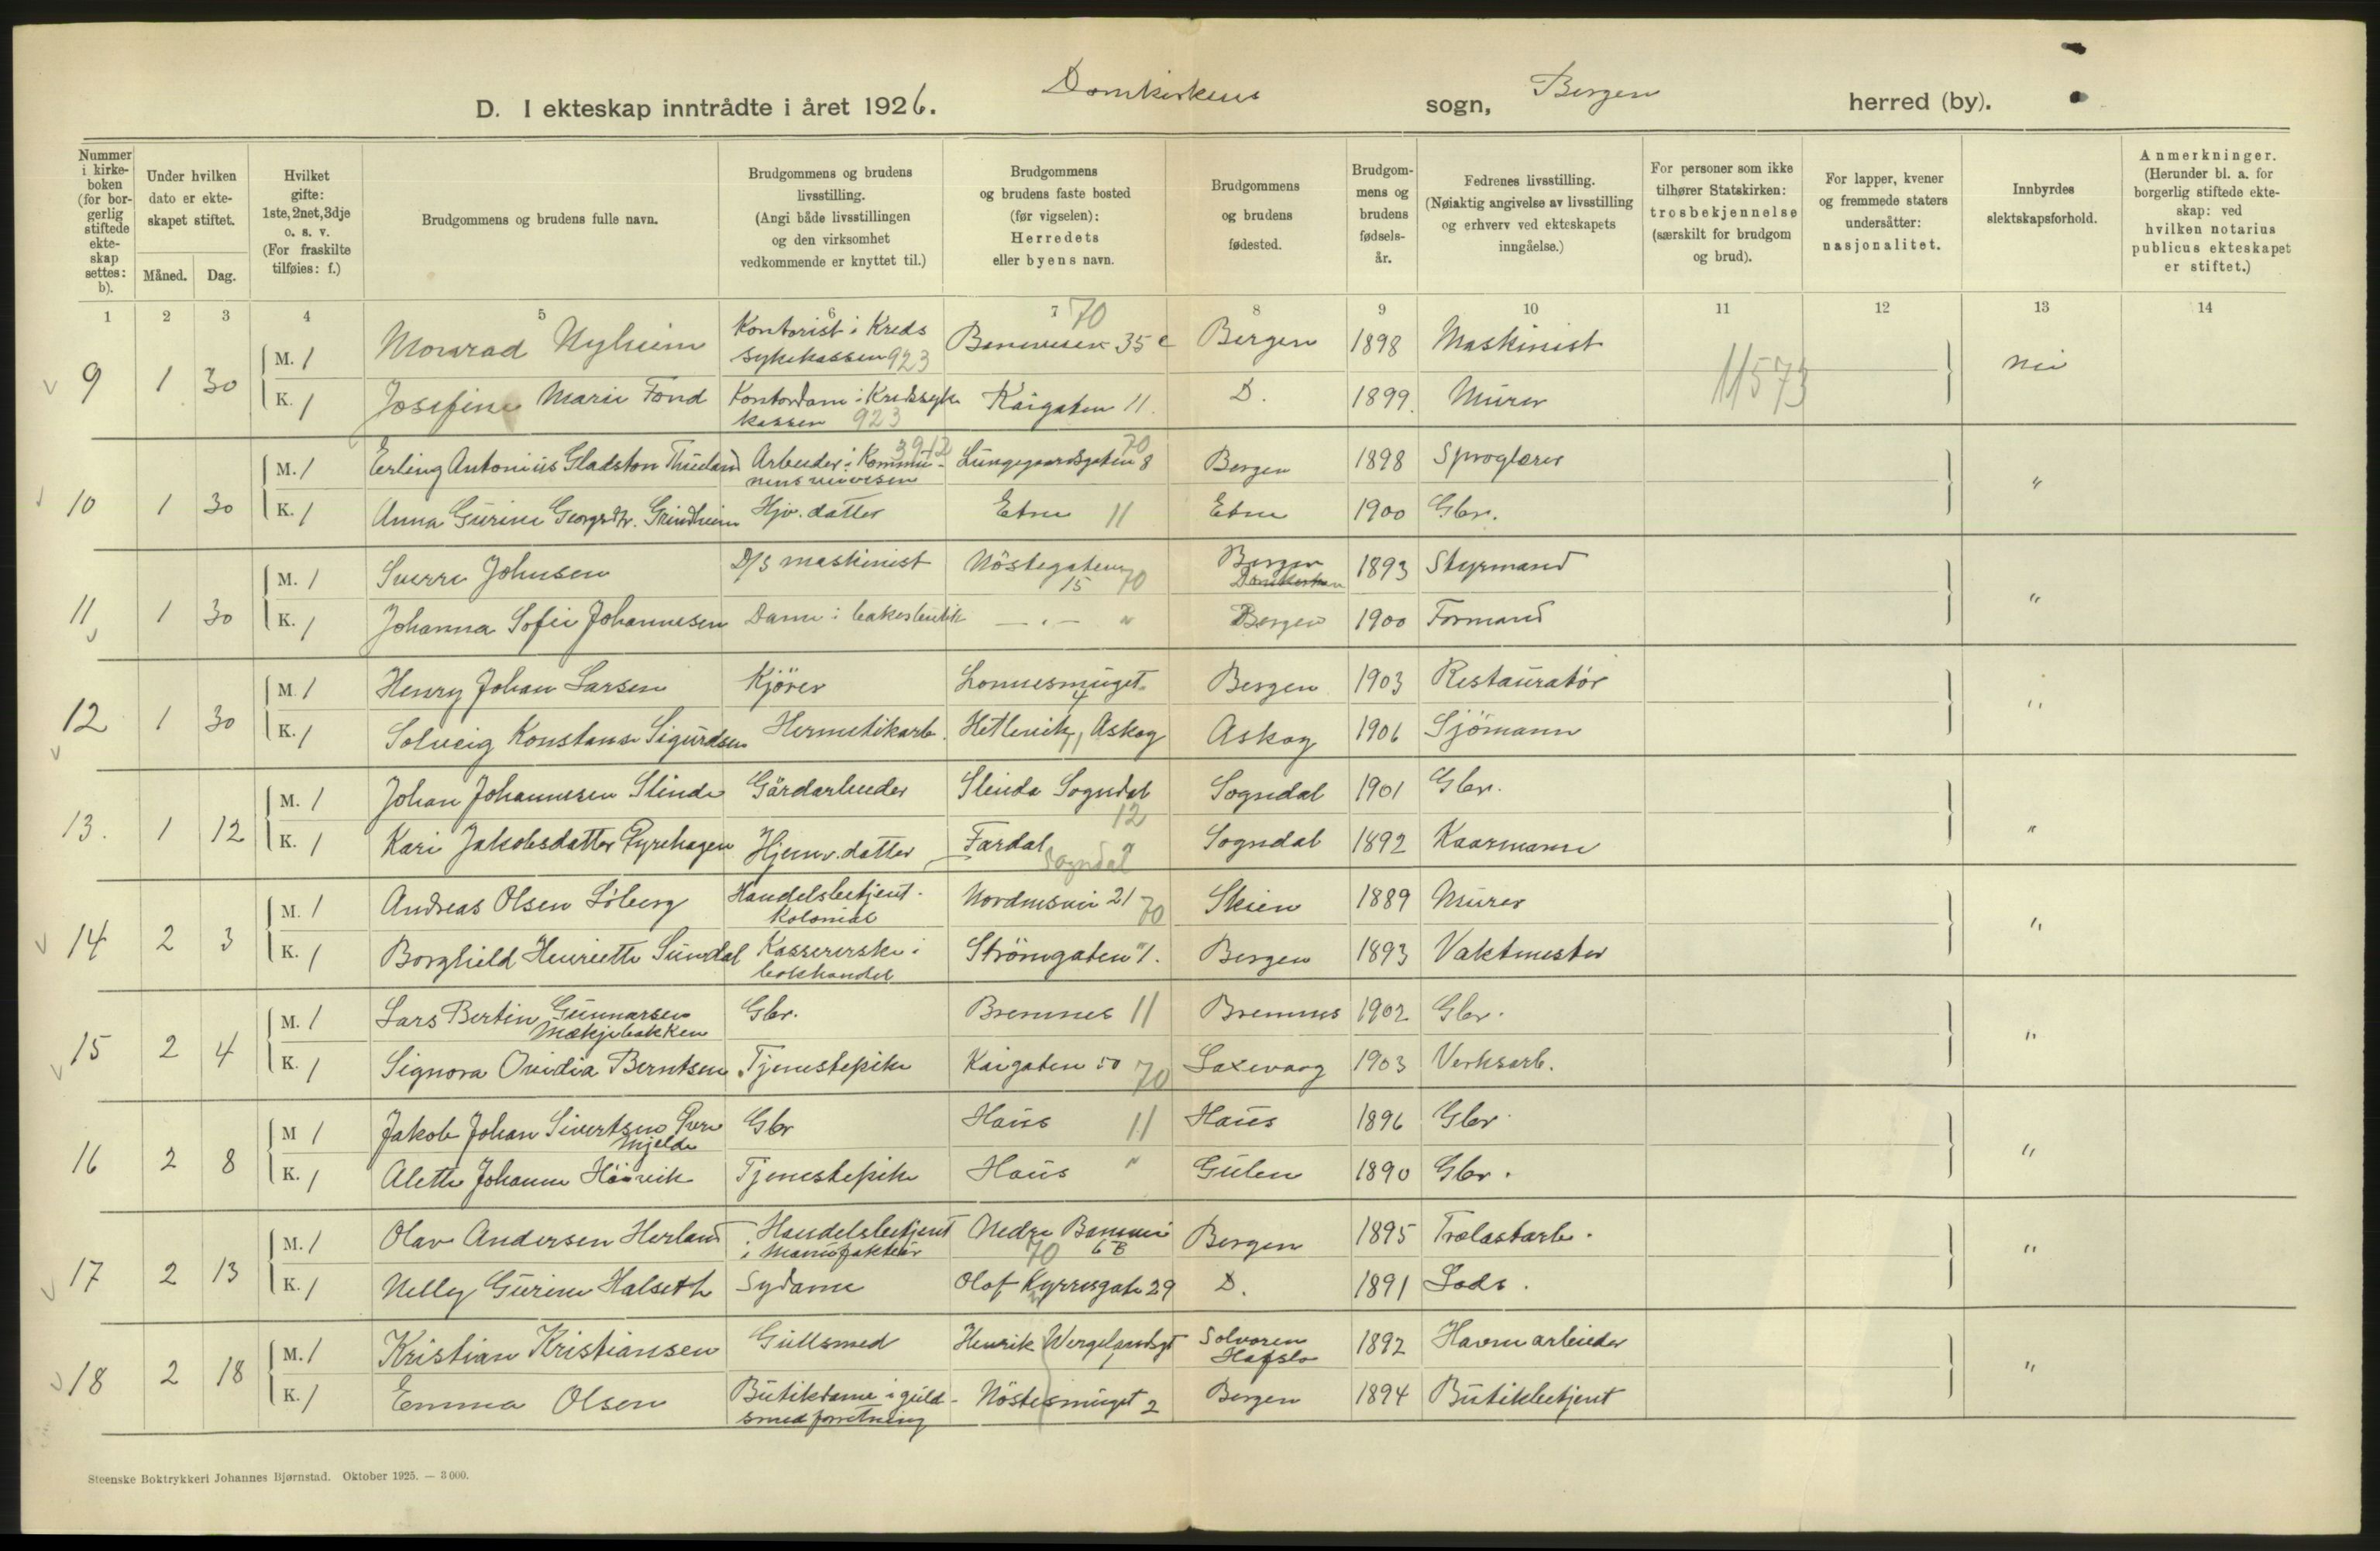 D. I ekteskap inntrådte i året 1926. Domkirkens sogn, Bergen herred (by).
Nummer i kirkeboken (for borgerlig stiftede ekteskap settes: b).
Under hvilken dato er ekteskapet stiftet.
Måned. Dag.
Hvilket gifte: 1ste, 2net, 3dje o. s. v. (For fraskilte tilføies: f.)
Brudgommens og brudens fulle navn.
Brudgommens og brudens livsstilling. (Angi både livsstillingen og den virksomhet vedkommende er knyttet til.)
Brudgommens og brudens faste bosted (før vigselen): Herredets eller byens navn.
Brudgommens og brudens fødested.
Brudgommens og brudens fødselsår.
Fedrenes livsstilling. (Nøiaktig angivelse av livsstilling og erhverv ved ekteskapets inngåelse.)
For personer som ikke tilhører Statskirken: trosbekjennelse (særskilt for brudgom og brud).
For lapper, kvener og fremmede staters undersåtter: nasjonalitet.
Innbyrdes slektskapsforhold.
Anmerkninger. (Herunder bl. a. for borgerlig stiftede ekteskap: ved hvilken notarius publicus ekteskapet er stiftet.)
1 2 3 4 5 6 7 8 9 10 11 12 13 14
9 1 30 M. 1 Monrad Nyheim Kontorist i Kreds sykekassen 923 35 c 70 Bergen 1898 Maskinist nei
K. 1 Josefine Marie Fond Kontordame i Kredssyke kassen 923 Kaigaten 11. D. 1899. Murer 11573
10 1 30 M. 1 Erling Antonius Gladston Arbeider i Kommu- 3912 Lungegaardsgaten 8 70 Bergen 1898 Sproglærer "
K. 1 Anna Gurine Georgsdtr. Grindheim Hjv. datter Etne 11 Etne 1900 Gbr.
11 1 30 M. 1 Sverre Johnsen D/S maskinist Nöstegaten 15 70 Bergen Domkirken 1893 Styrmand "
K. 1 Johanna Sofie Johannesen Dame i bakerbutik — . — " Bergen 1900 Formand
12 1 30 M. 1 Henry Johan Larsen Kjörer 4 Bergen 1903 Restauratör "
K. 1 Solveig Konstanse Sigurdsen Hermetikarb. Hetlevik, Askøy 11 Askøy 1906 Sjömann
13. 1 12 M. 1 Johan Johannesen Slinde Gårdarbeider Slinde Sogndal 12 Sogndal 1901 Gbr. "
K. 1 Kari Jakobsdatter Hjemv. datter Fardal Sogndal " Sogndal 1892 Kaarmann
14 2 3 M. 1 Andreas Olsen Söberg Handelsbetjent. Kolonial Nordnesvei 21 70 Skien 1889 Murer "
K. 1 Borghild Henriette Sundal Kassererske i bokhandel Strömgaten 1. " Bergen 1893 Vaktmester
15 2 4 M. 1 Lars Bertin Gunnarsen Mækjebakken Gbr. Bremnes 11 Bremnes 1902 Gbr. "
K. 1 Signora Ovidia Berntsen Tjenestepike Kaigaten 50 70 Laxevaag 1903 Verksarb.
16 2 8 M 1 Jakob Johan Sivertsen Mjelde Gbr Haus 11 Haus 1896 Gbr. "
K. 1 Alette Johanne Håvik Tjenestepike Haus " Gulen 1890 Gbr.
17 2 13 M. 1 Olav Andersen Herland Handelsbetjent i Manufaktur Nedre Banevei 6 B 70 Bergen 1895 Trælastarb. "
K. 1 Nelly Gurine Halseth Sydame Olof Kyrresgate 29 D. 1891 Lods.
18 2 18 M. 1 Kristian Kristiansen Gullsmed Henrik Wergelandsgt 1 Solvoren Hafslo 1892 Havnearbeider "
K. 1 Emma Olsen Butikdame i guld- smedforretning Nöstesmuget 2 Bergen 1894 Butikbetjent
Steenske Boktrykkeri Johannes Bjørnstad. Oktober 1925. — 3 000.